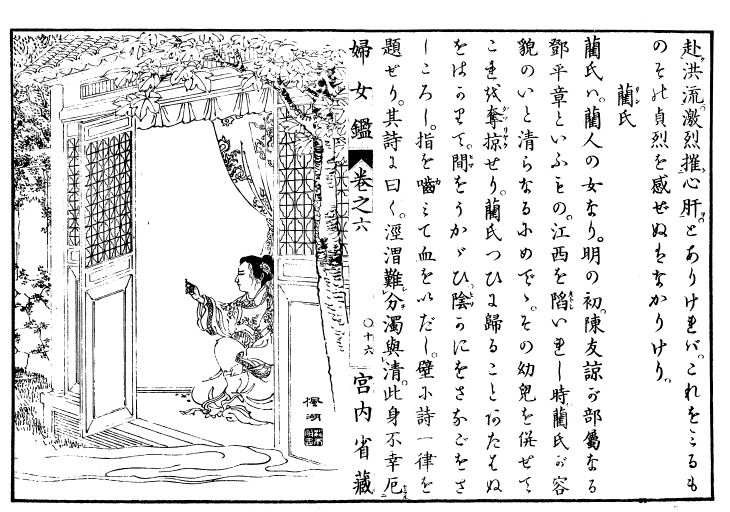 赴洪流。激烈摧心肝。とありければ。これをみるも
のその貞烈を感ぜぬはなかりけり。
藺氏
藺氏ハ。藺人の女なり。明の初。陳友諒が部屬なる
鄧平章といふもの。江西を陷いれし時。藺氏が容
貌のいと清らなるにめでゝ。その幼兒を併せて
これを奪掠せり。藺氏つひに歸ることあたはぬ
をはかりて。間をうかゞひ。陰かにをさなごをさ
しころし。指を嚙みて血をいだし。壁に詩一律を
題せり。其詩に曰く。涇渭難分濁與清。此身不幸厄
婦女鑑 卷之六 〇十六 宮内省藏
楓湖